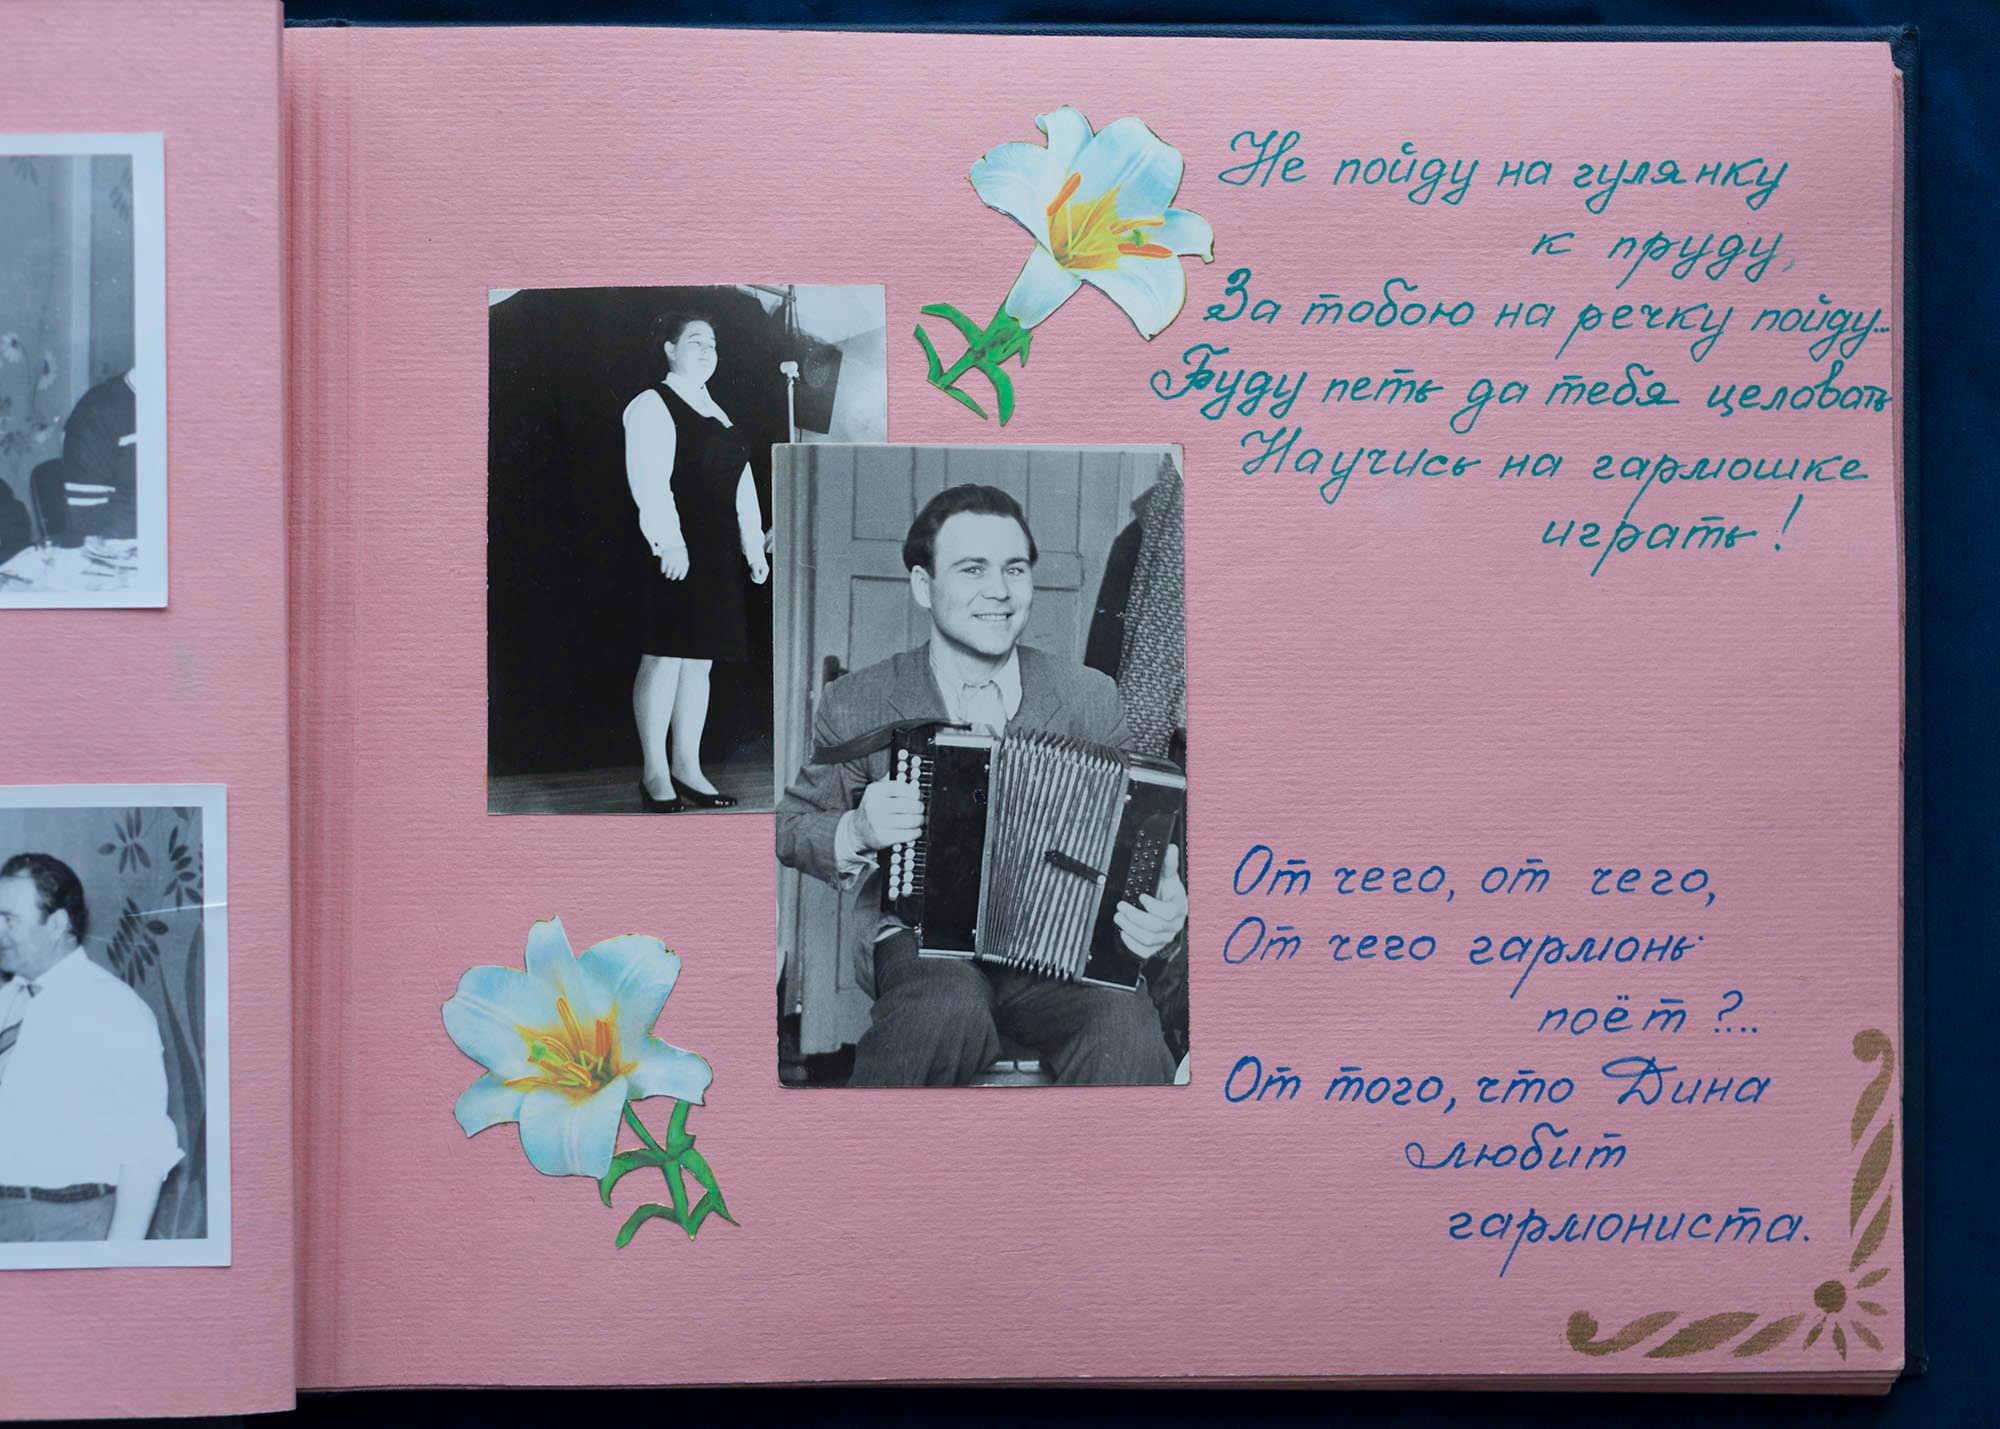 Не пойду на гулянку
к пруду,
За тобою на речку пойду...
Буду петь да тебя целовать
Научись на гармошке
играть!
От чего, от чего,
От чего гармонь
поёт?...
От того, что Дина
любит
гармониста.